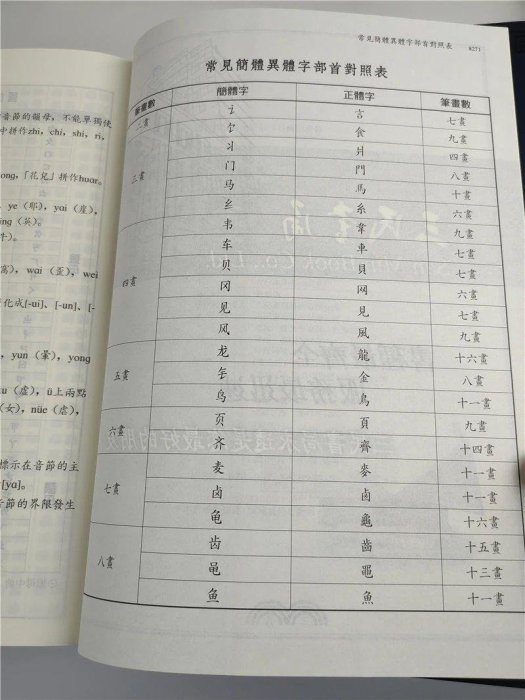 音節的韻母,不能單獨使
中拼作zhi, chi, shi, ri,
ong,「花兒」拼作huar。
, ye (耶), yai (崖),
ing (英)。
牛)。
窩), wai (歪), wei
化成[-ui]、[-un]、[-
, yun (暈), yong
u (虛), ü上兩點
(女), nüe (虐),
標示在音節的主
[ya]。
音節的界限發生
常見簡體異體字部首對照表 8271
常見簡體異體字部首對照表
筆畫數 簡體字 正體字 筆畫數
二畫 讠 言 七畫
饣 食 九畫
丬 爿 四畫
三畫 门 門 八畫
马 馬 十畫
纟 糸 六畫
韦 韋 九畫
车 車 七畫
贝 貝 七畫
四畫 冈 网 六畫
见 見 七畫
风 風 九畫
龙 龍 十六畫
五畫 钅 金 八畫
鸟 鳥 十一畫
六畫 页 頁 九畫
齐 齊 十四畫
麦 麥 十一畫
七畫 卤 鹵 十一畫
龟 龜 十六畫
齿 齒 十五畫
八畫 黾 黽 十三畫
鱼 魚 十一畫